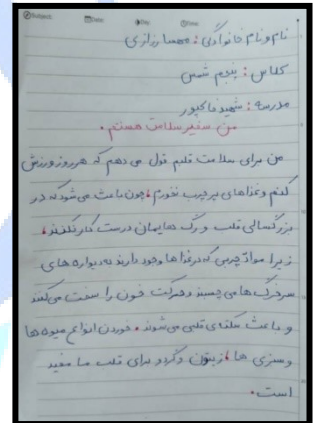 Subject: Date: Day: Time:
نام و نام خانوادگی: مهسا رزازی
کلاس: پنجم شمس
مدرسه: شهید خاکپور
من سفیر سلامت هستم.
من برای سلامت قلبم قول می دهم که هر روز ورزش
کنم و غذاهای پرچرب نخورم، چون باعث می شود که در
بزرگسالی قلب و رگ هایمان درست کار نکنند،
زیرا مواد چربی که در غذاها وجود دارند به دیواره های
سرخرگ ها می چسبند و حرکت خون را سخت می کنند
و باعث سکته ی قلبی می شوند. خوردن انواع میوه ها
و سبزی ها، زیتون و گردو برای قلب ما مفید
است.